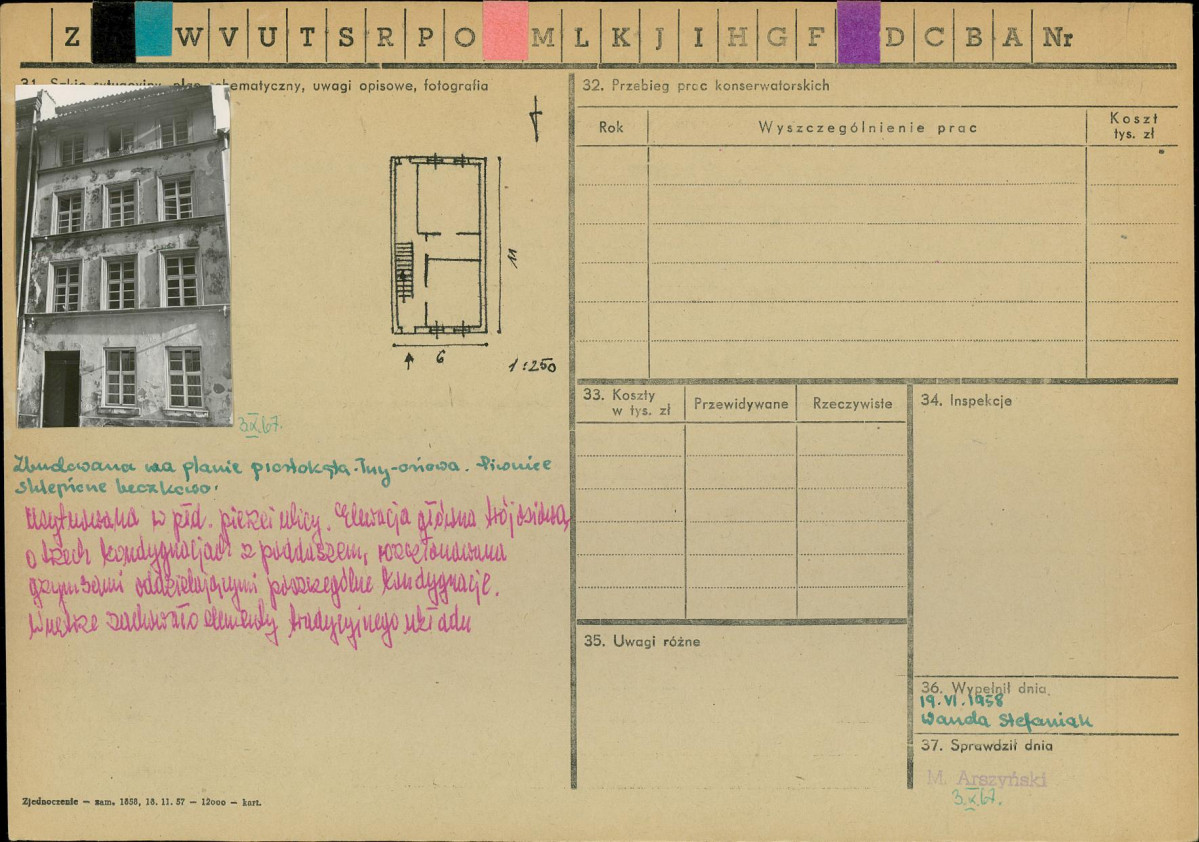 Z W V U T S R P O M L K J I H G F D C B A Nr
31. Szkic sytuacyjny, plan schematyczny, uwagi opisowe, fotografia
11
6
1:250
3.X.67.
Zbudowana na planie prostokąta. Trzy-osiowa. Piwnice
sklepione beczkowo.
Usytuowana w płd. pierzei ulicy. Elewacja główna trójosiowa,
o trzech kondygnacjach z poddaszem, rozczłonowana
gzymsami oddzielającymi poszczególne kondygnacje.
Wnętrze zachowało elementy tradycyjnego układu
Zjednoczenie — zam. 1858, 18. 11. 57 — 12000 — kart.
32. Przebieg prac konserwatorskich
Rok
Wyszczególnienie prac
Koszt
tys. zł
33. Koszty
w tys. zł
Przewidywane
Rzeczywiste
34. Inspekcje
35. Uwagi różne
36. Wypełnił dnia
19.VI.1958
Wanda Stefaniak
37. Sprawdził dnia
M. Arszyński
3.X.67.